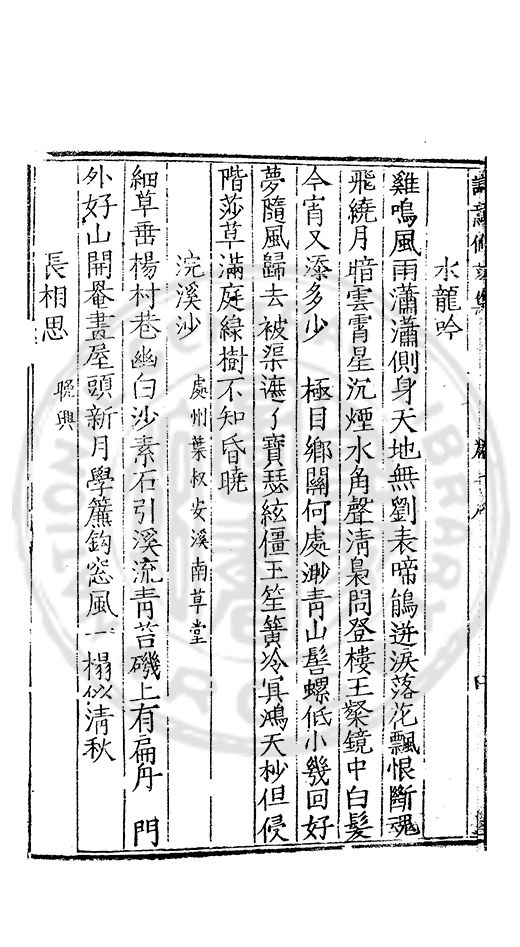 水龍吟
雞鳴風雨瀟瀟側身天地無劉表啼鵑迸淚落花飄恨斷魂
飛繞月暗雲霄星沉煙水角聲淸裊問登樓王粲鏡中白髮
今宵又添多少　極目鄉關何處渺靑山髻螺低小幾回好
夢隨風歸去被渠遮了寶瑟絃僵玉笙簧冷冥鴻天杪但侵
階莎草滿庭綠樹不知昏曉
浣溪沙　處州葉叔安溪南草堂
細草垂楊村巷幽白沙素石引溪流靑苔磯上有扁舟　門
外好山開罨畫屋頭新月學簾鈎窓風一榻似清秋
長相思　晚興